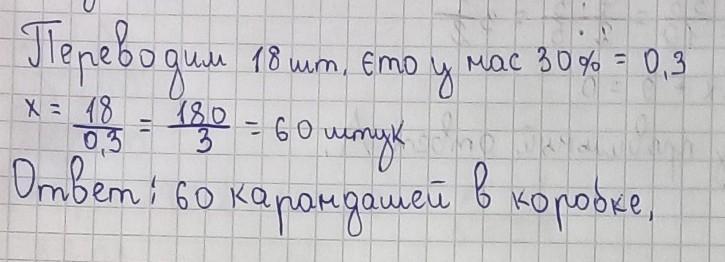 Переводим 18 шт, ето у нас 30% = 0,3
x = 18/0,3 = 180/3 = 60 штук
Ответ: 60 карандашей в коробке,